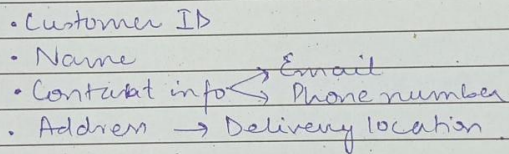 • Customer ID
• Name
• Contact info → Email
→ Phone number
• Address → Delivery location